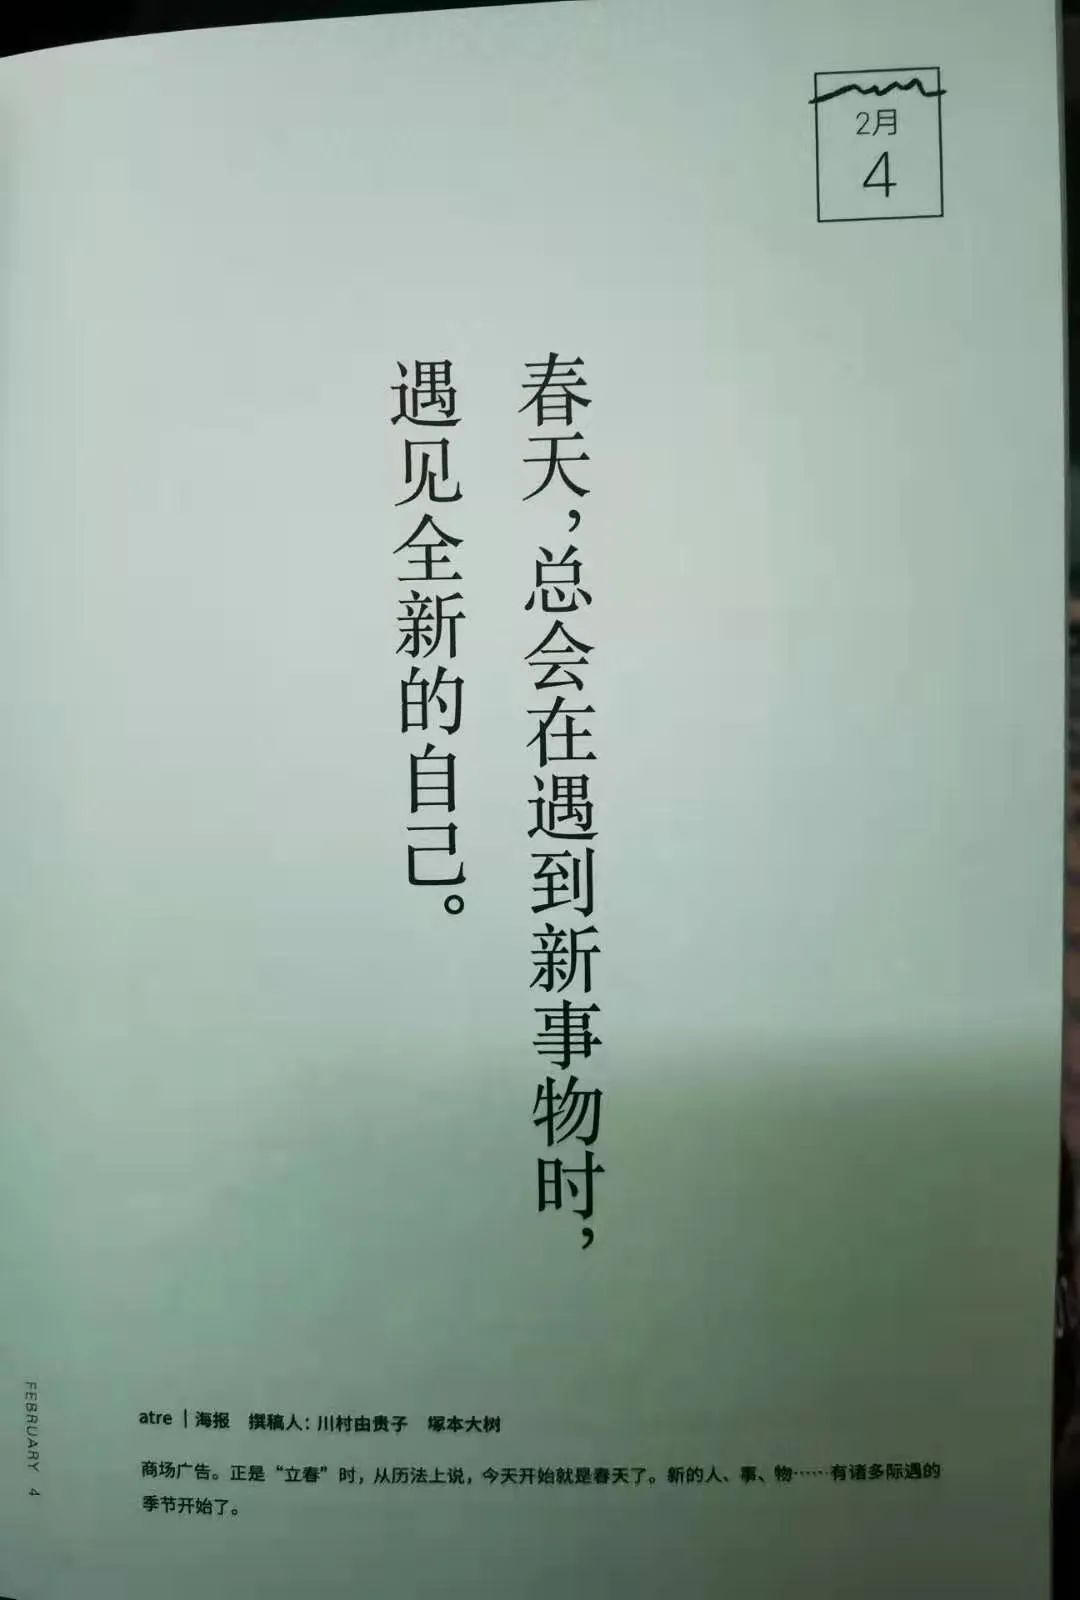 2月
4
春天，总会在遇到新事物时，
遇见全新的自己。
atre | 海报 撰稿人：川村由贵子 塚本大树
商场广告。正是“立春”时，从历法上说，今天开始就是春天了。新的人、事、物……有诸多际遇的
季节开始了。
FEBRUARY 4